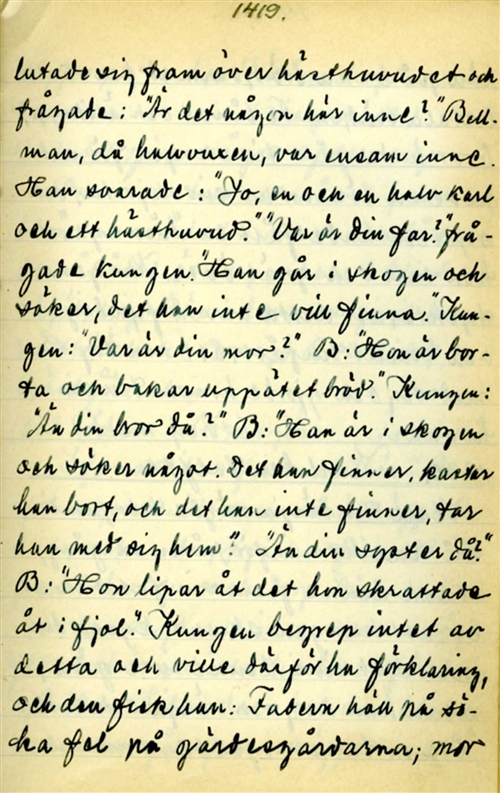 1419.
lutade sig fram över hästhuvudet och
frågade: "Är det någon här inne?" Bell-
man, då halvvuxen, var ensam inne.
Han svarade: "Jo, en och en halv karl
och ett hästhuvud." "Var är din far?" frå-
gade kungen. "Han går i skogen och
söker, det han inte vill finna." Kun-
gen: "Var är din mor?" B: "Hon är bor-
ta och bakar uppätet bröd." Kungen:
"Än din bror då?" B: "Han är i skogen
och söker något. Det han finner, kastar
han bort, och det han inte finner, tar
han med sig hem." "Än din syster då?"
B: "Hon lipar åt det hon skrattade
åt i fjol." Kungen begrep intet av
detta och ville därför ha förklaring,
och den fick han: Fadern höll på sö-
ka fel på gärdesgårdarna; mor